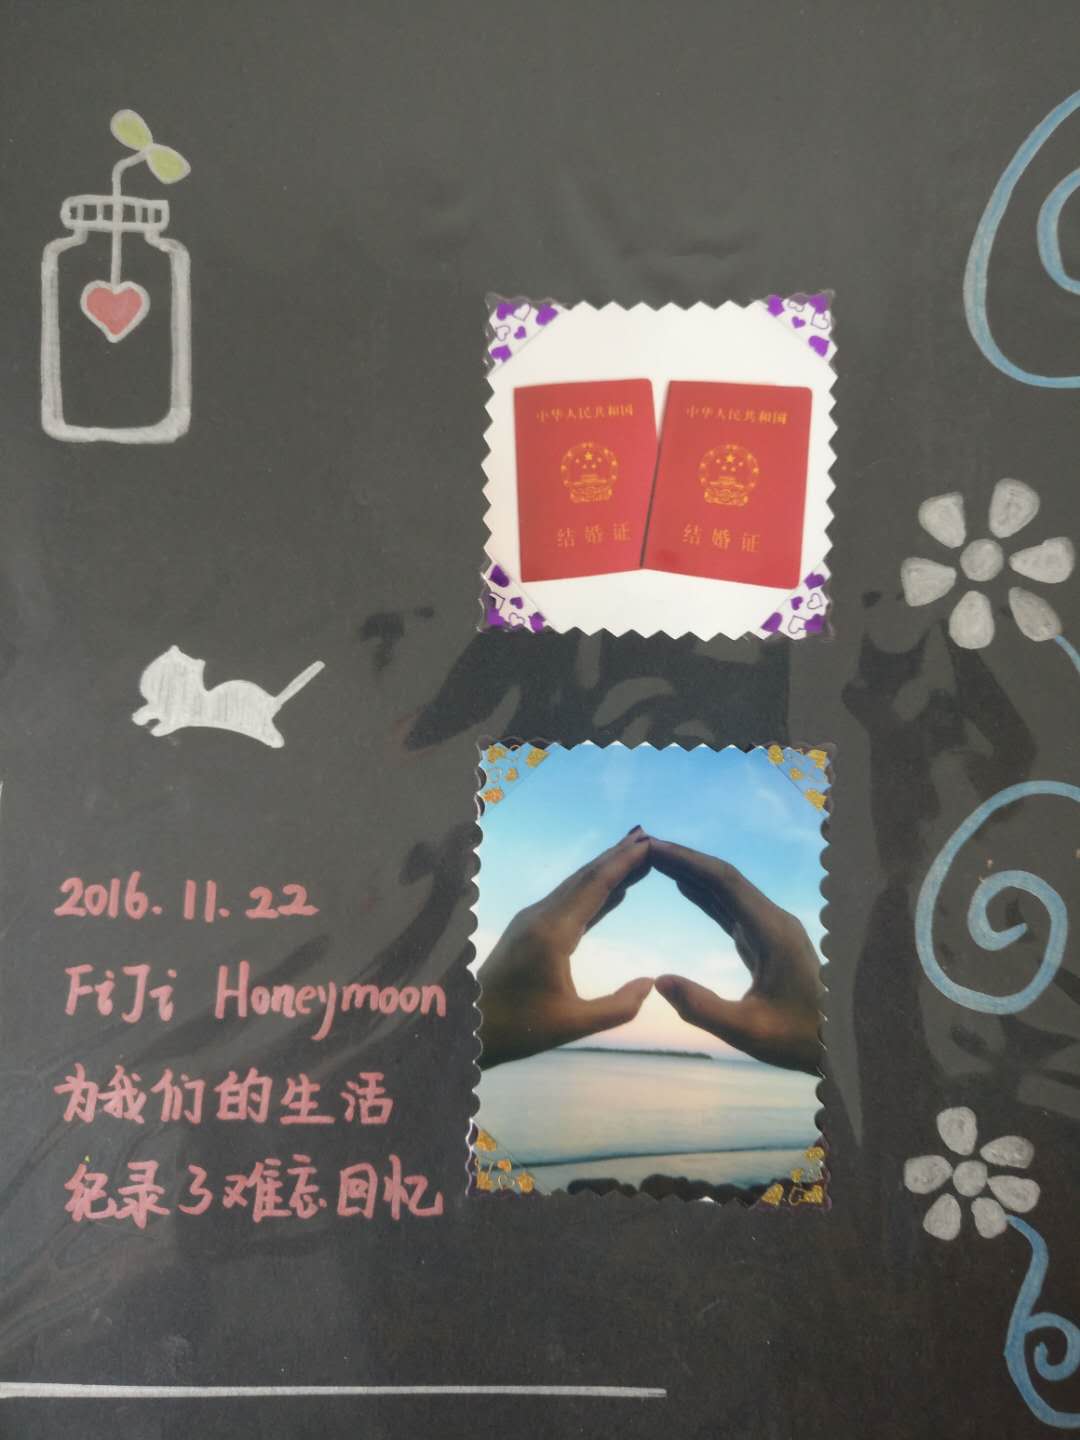 中华人民共和国
结婚证
中华人民共和国
结婚证
2016.11.22
FiJi Honeymoon
为我们的生活
纪录了难忘回忆